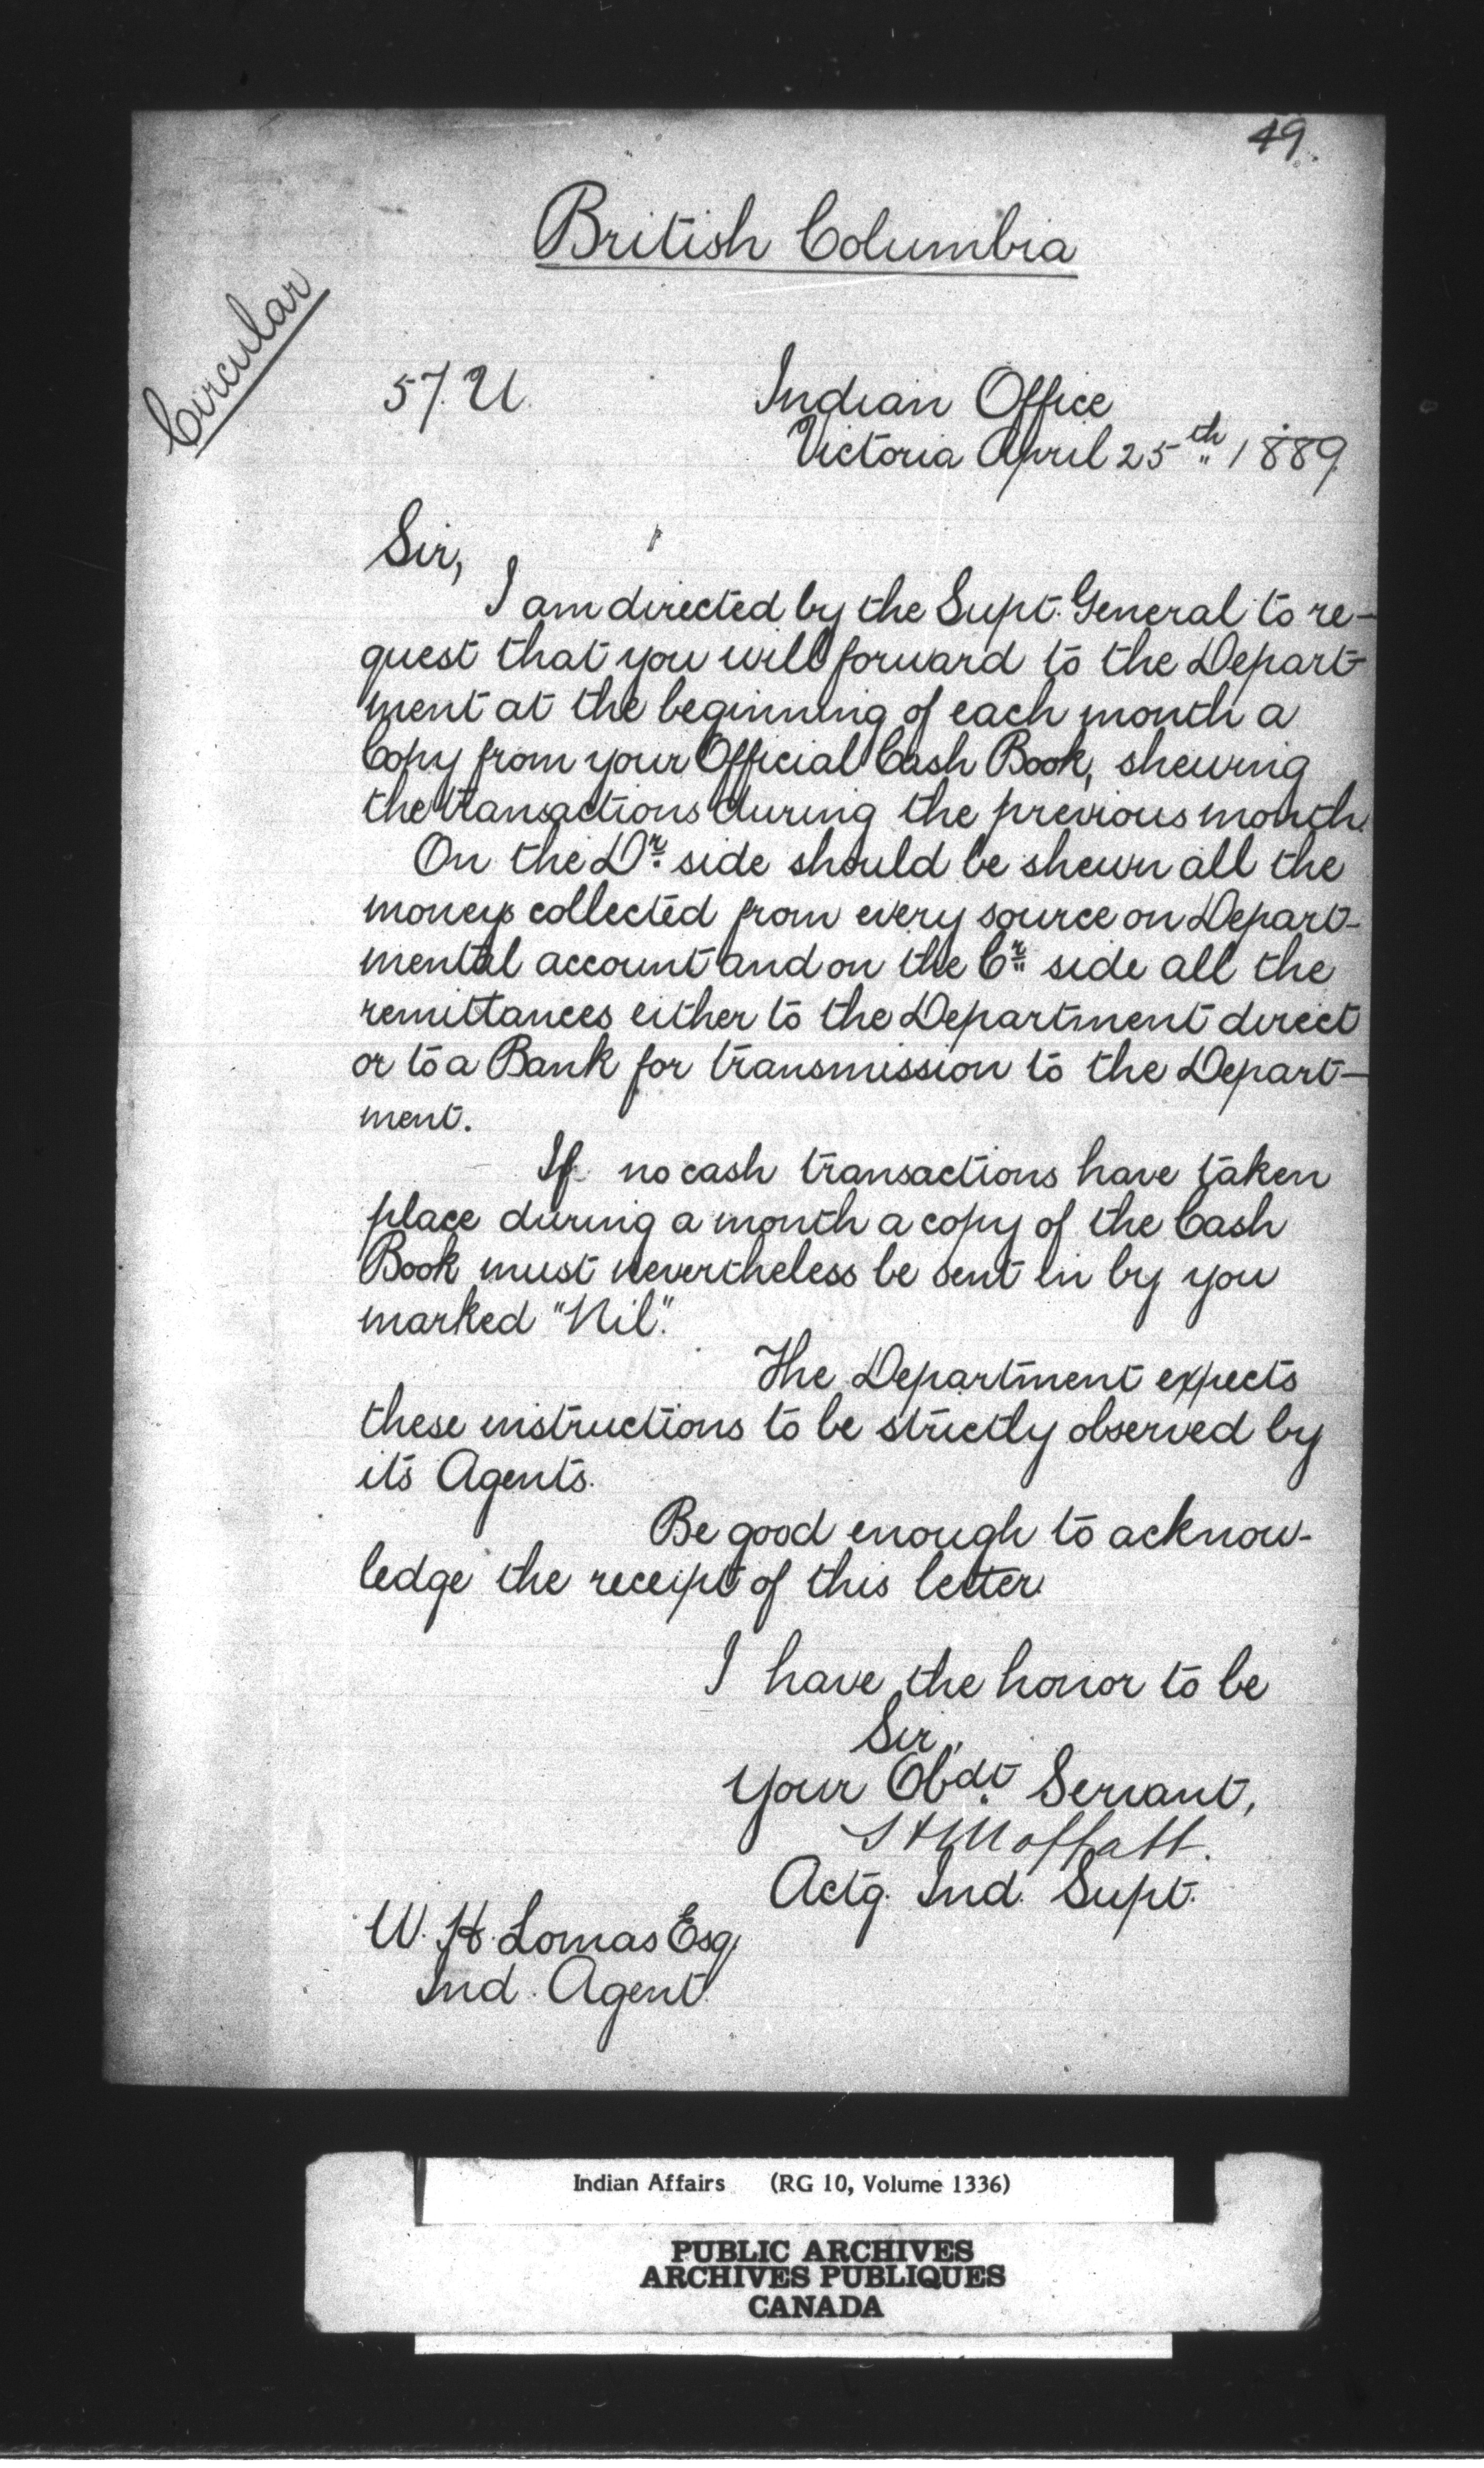 49.
British Columbia
Circular
57. U.
Indian Office
Victoria April 25th 1889
Sir,
I am directed by the Supt. General to re-
quest that you will forward to the Depart-
ment at the beginning of each month a
Copy from your Official Cash Book, shewing
the transactions during the previous month.
On the Dr. side should be shewn all the
moneys collected from every source on Depart-
mental account and on the Cr. side all the
remittances either to the Department direct
or to a Bank for transmission to the Depart-
ment.
If no cash transactions have taken
place during a month a copy of the Cash
Book must nevertheless be sent in by you
marked "Nil".
The Department expects
these instructions to be strictly observed by
its Agents.
Be good enough to acknow-
ledge the receipt of this letter.
I have the honor to be
Sir,
Your Obdt. Servant,
Moffatt.
Actg. Ind. Supt.
W. H. Lomas Esq
Ind. Agent.
Indian Affairs (RG 10, Volume 1336)
PUBLIC ARCHIVES
ARCHIVES PUBLIQUES
CANADA